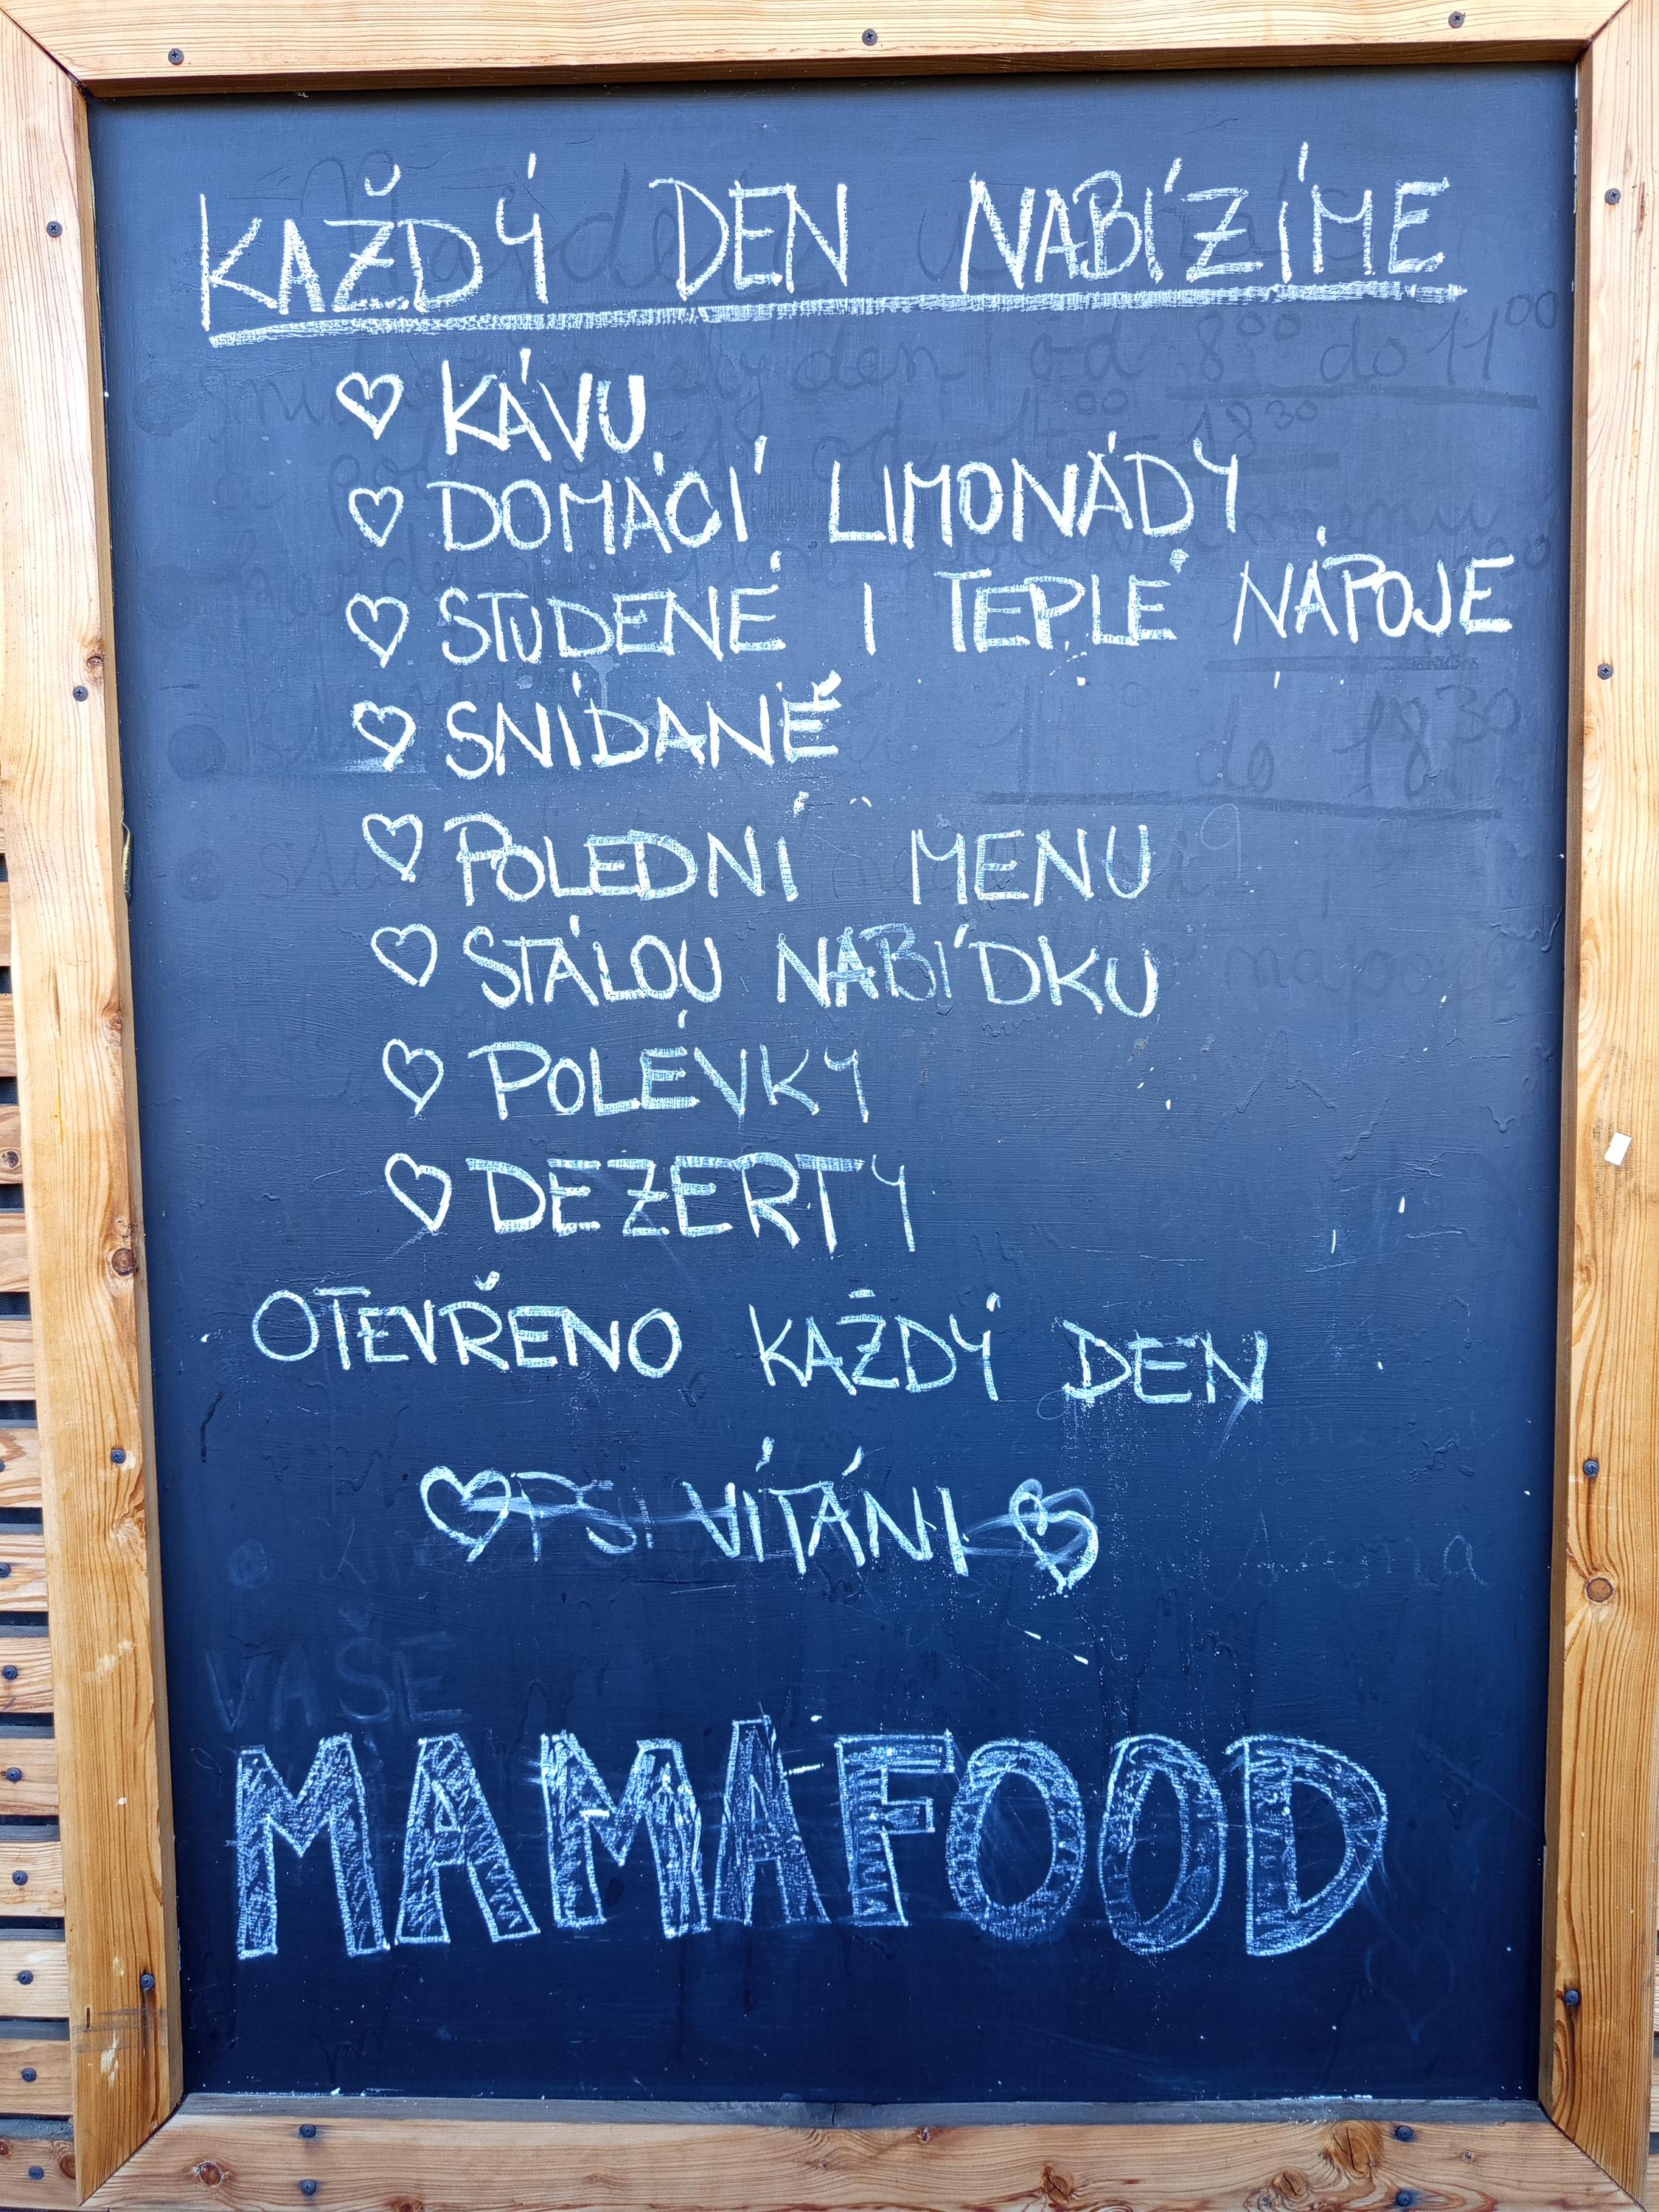 KAŽDÝ DEN NABÍZÍME
♡ KÁVU
♡ DOMÁCÍ LIMONÁDY
♡ STUDENÉ I TEPLÉ NÁPOJE
♡ SNÍDANĚ
♡ POLEDNÍ MENU
♡ STÁLOU NABÍDKU
♡ POLÉVKY
♡ DEZERTY
OTEVŘENO KAŽDÝ DEN
♡ PSI VÍTÁNI ♡
VAŠE
MAMAFOOD